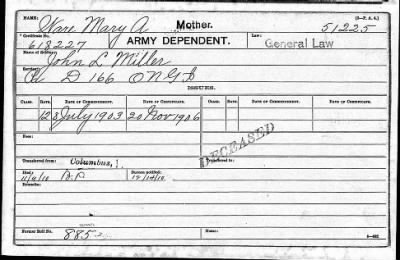 NAME: Ware Mary A. Mother. (3-P. A. G.) 51225
Certificate No. 618227 ARMY DEPENDENT. Law: General Law
Name of Soldier: John L Miller
Service: Co D 166 O N G I
ISSUES.
CLASS. DATE OF COMMENCEMENT. DATE OF CERTIFICATE. CLASS. DATE OF COMMENCEMENT. DATE OF CERTIFICATE.
12 8 July 1903 20 Nov 1906
Fees:
DECEASED
Transferred from Columbus, 1. Transferred to
Died:
11/4/10
Remarks:
Former Roll No. 885